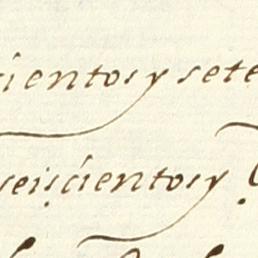 cientos y sete
seiscientos y